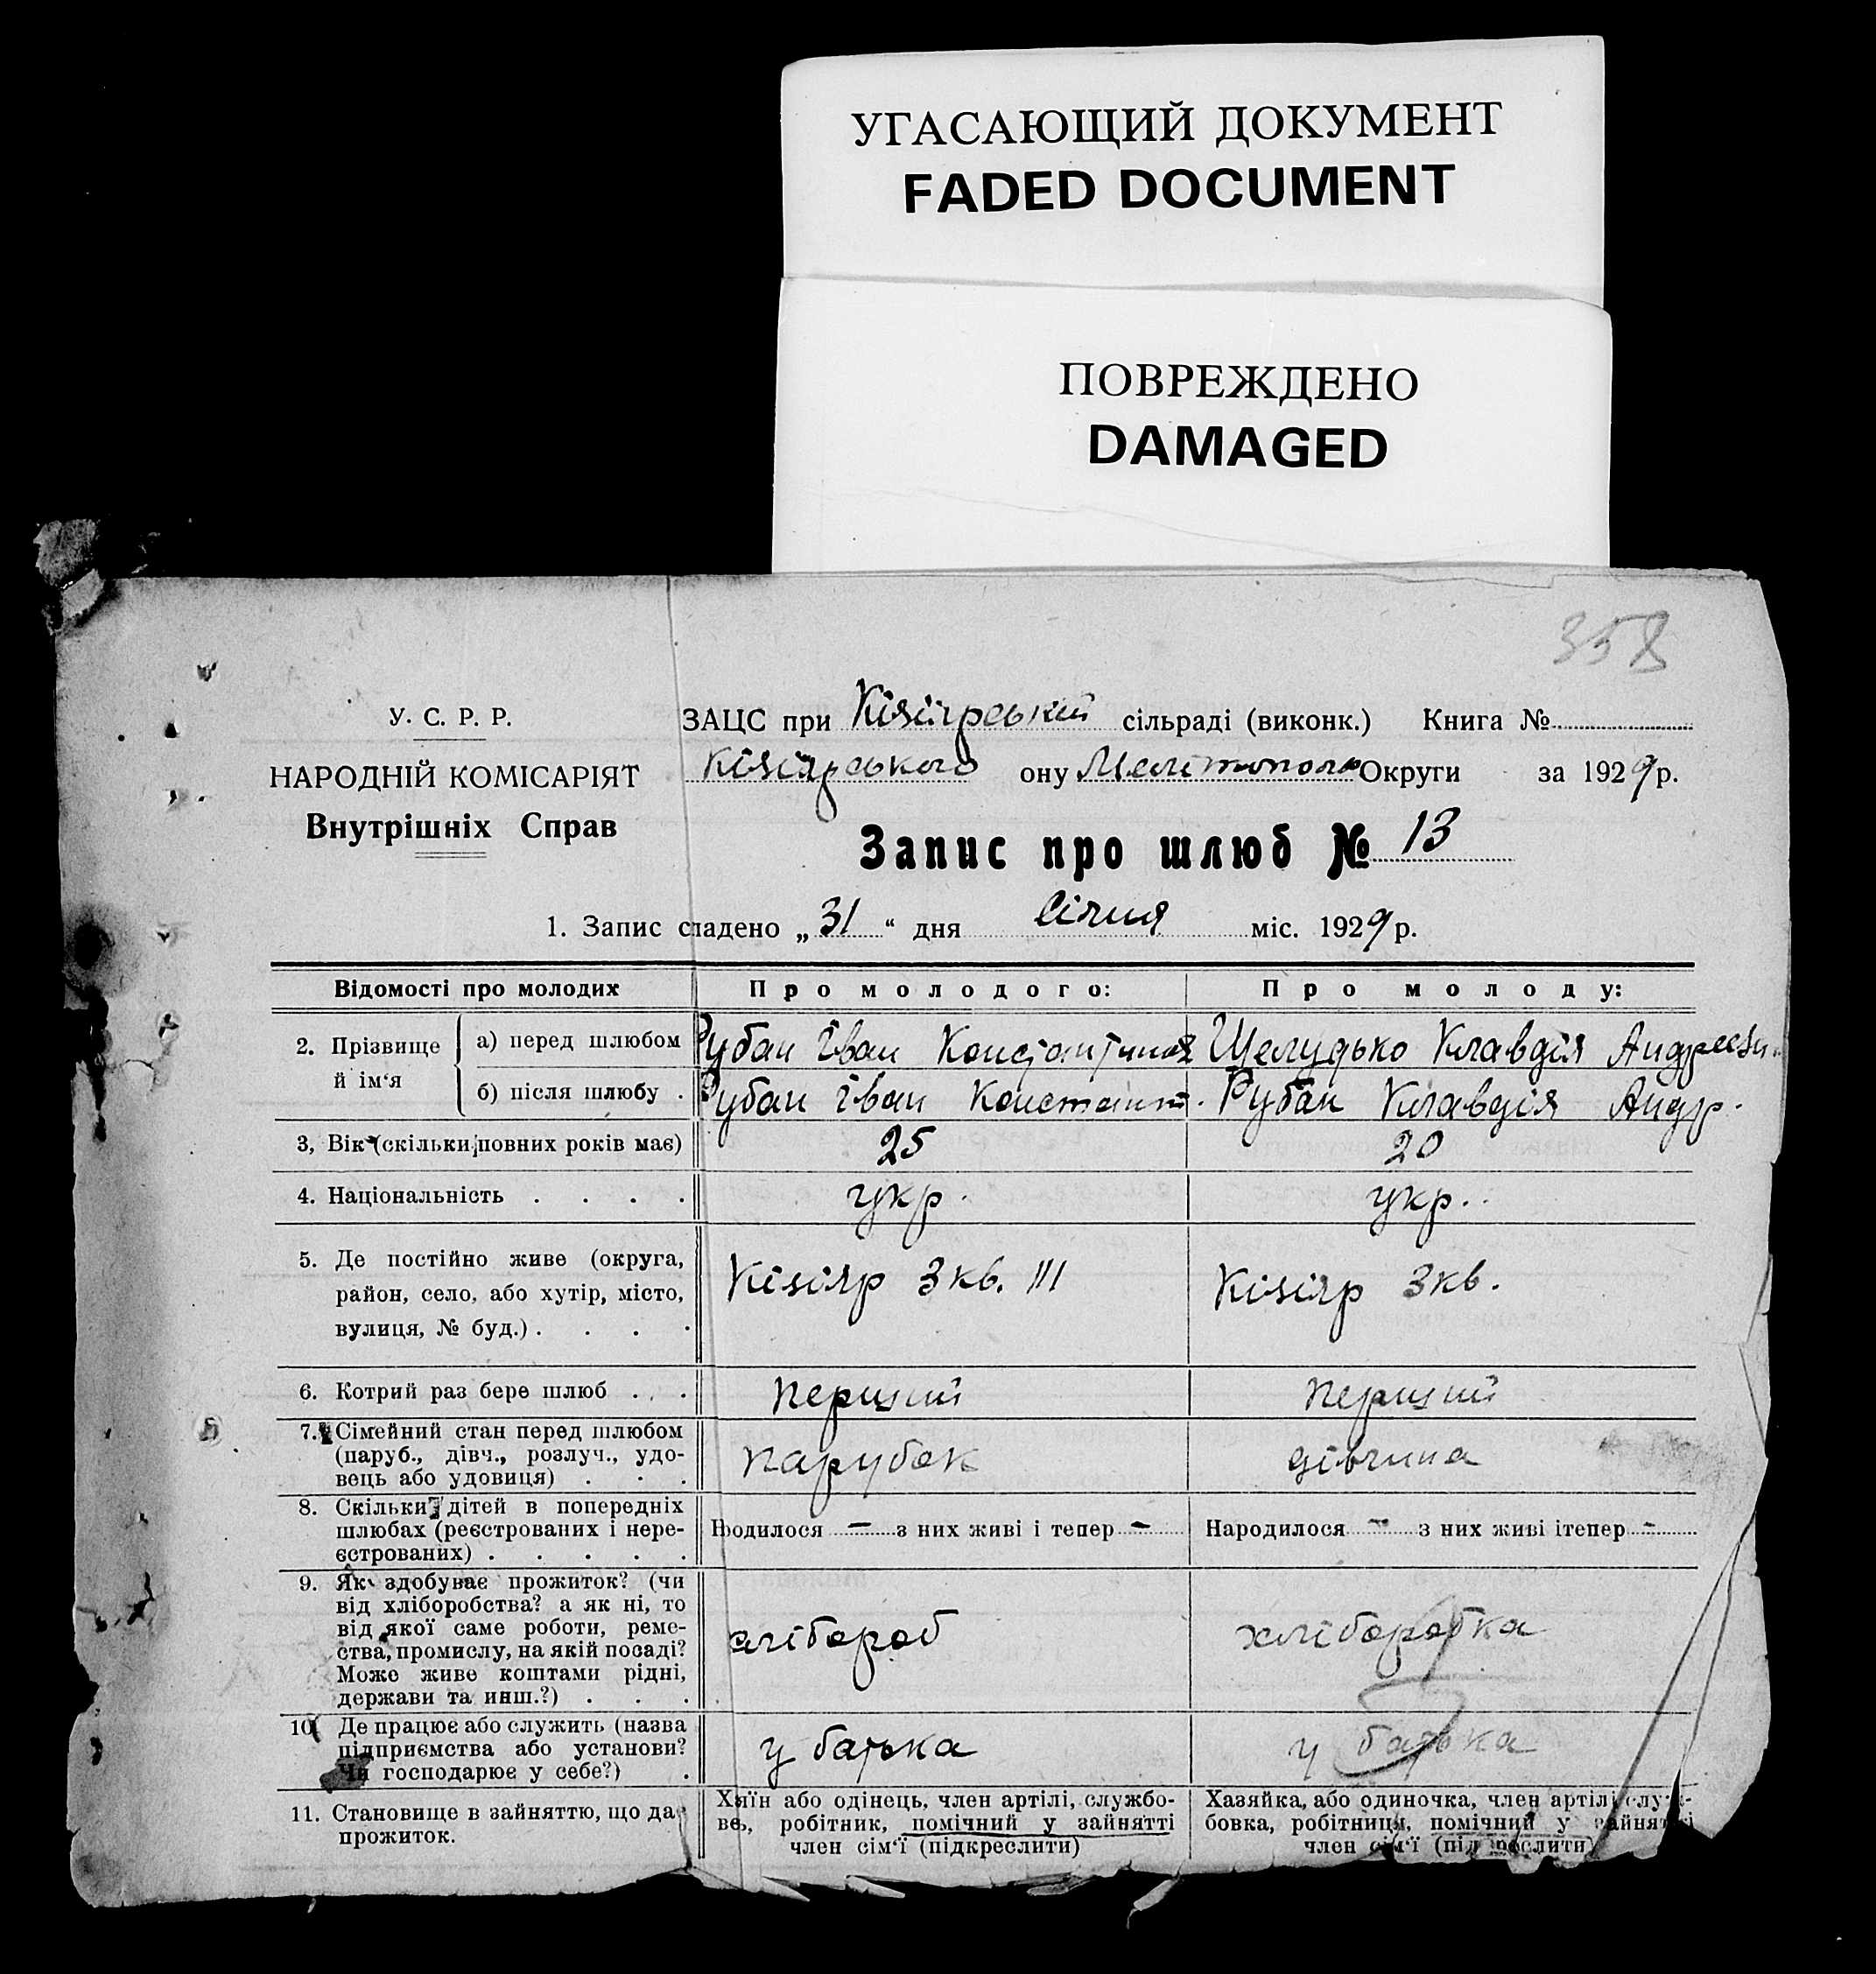 УГАСАЮЩИЙ ДОКУМЕНТ
FADED DOCUMENT
ПОВРЕЖДЕНО
DAMAGED
358
У. С. Р. Р.
НАРОДНІЙ КОМІСАРІЯТ
Внутрішніх Справ
ЗАЦС при Кізіярський сільраді (виконк.) Книга №
Кізіярського ону Мелітополь Округи за 1929 р.
Запис про шлюб № 13
1. Запис складено „31“ дня Січня міс. 1929 р.
Відомості про молодих Про молодого: Про молоду:
2. Прізвище й ім‘я
а) перед шлюбом Рубан Іван Константинов Шелудько Клавдія Андреевн.
б) після шлюбу . Рубан Іван Константин. Рубан Клавдія Андр.
3, Вік (скільки повних років має) 25 20
4. Національність . . . . укр. укр..
5. Де постійно живе (округа,
район, село, або хутір, місто,
вулиця, № буд.) . . . .
Кізіяр 3 кв. III Кізіяр 3кв.
6. Котрий раз бере шлюб . . . перший перший
7. Сімейний стан перед шлюбом
(паруб., дівч., розлуч., удо-
вець або удовиця) . . .
парубок дівчина
8. Скільки дітей в попередніх
шлюбах (реєстрованих і нере-
єстрованих) . . . . .
Народилося – з них живі і тепер – Народилося – з них живі ітепер -
9. Як здобуває прожиток? (чи
від хліборобства? а як ні, то
від якої саме роботи, реме-
ства, промислу, на якій посаді?
Може живе коштами рідні,
держави та инш.?) . . .
хлібороб хліборобка
10. Де працює або служить (назва
підприємства або установи?
Чи господарює у себе?) .
у батька у батька
11. Становище в зайняттю, що дає
прожиток.
Хазяїн або одінець, член артілі, службо-
вець, робітник, помічний у зайнятті
член сім‘ї (підкреслити)
Хазяйка, або одиночка, член артілі служ-
бовка, робітниця, помічний у зайнятті
член сім‘ї (підкреслити)